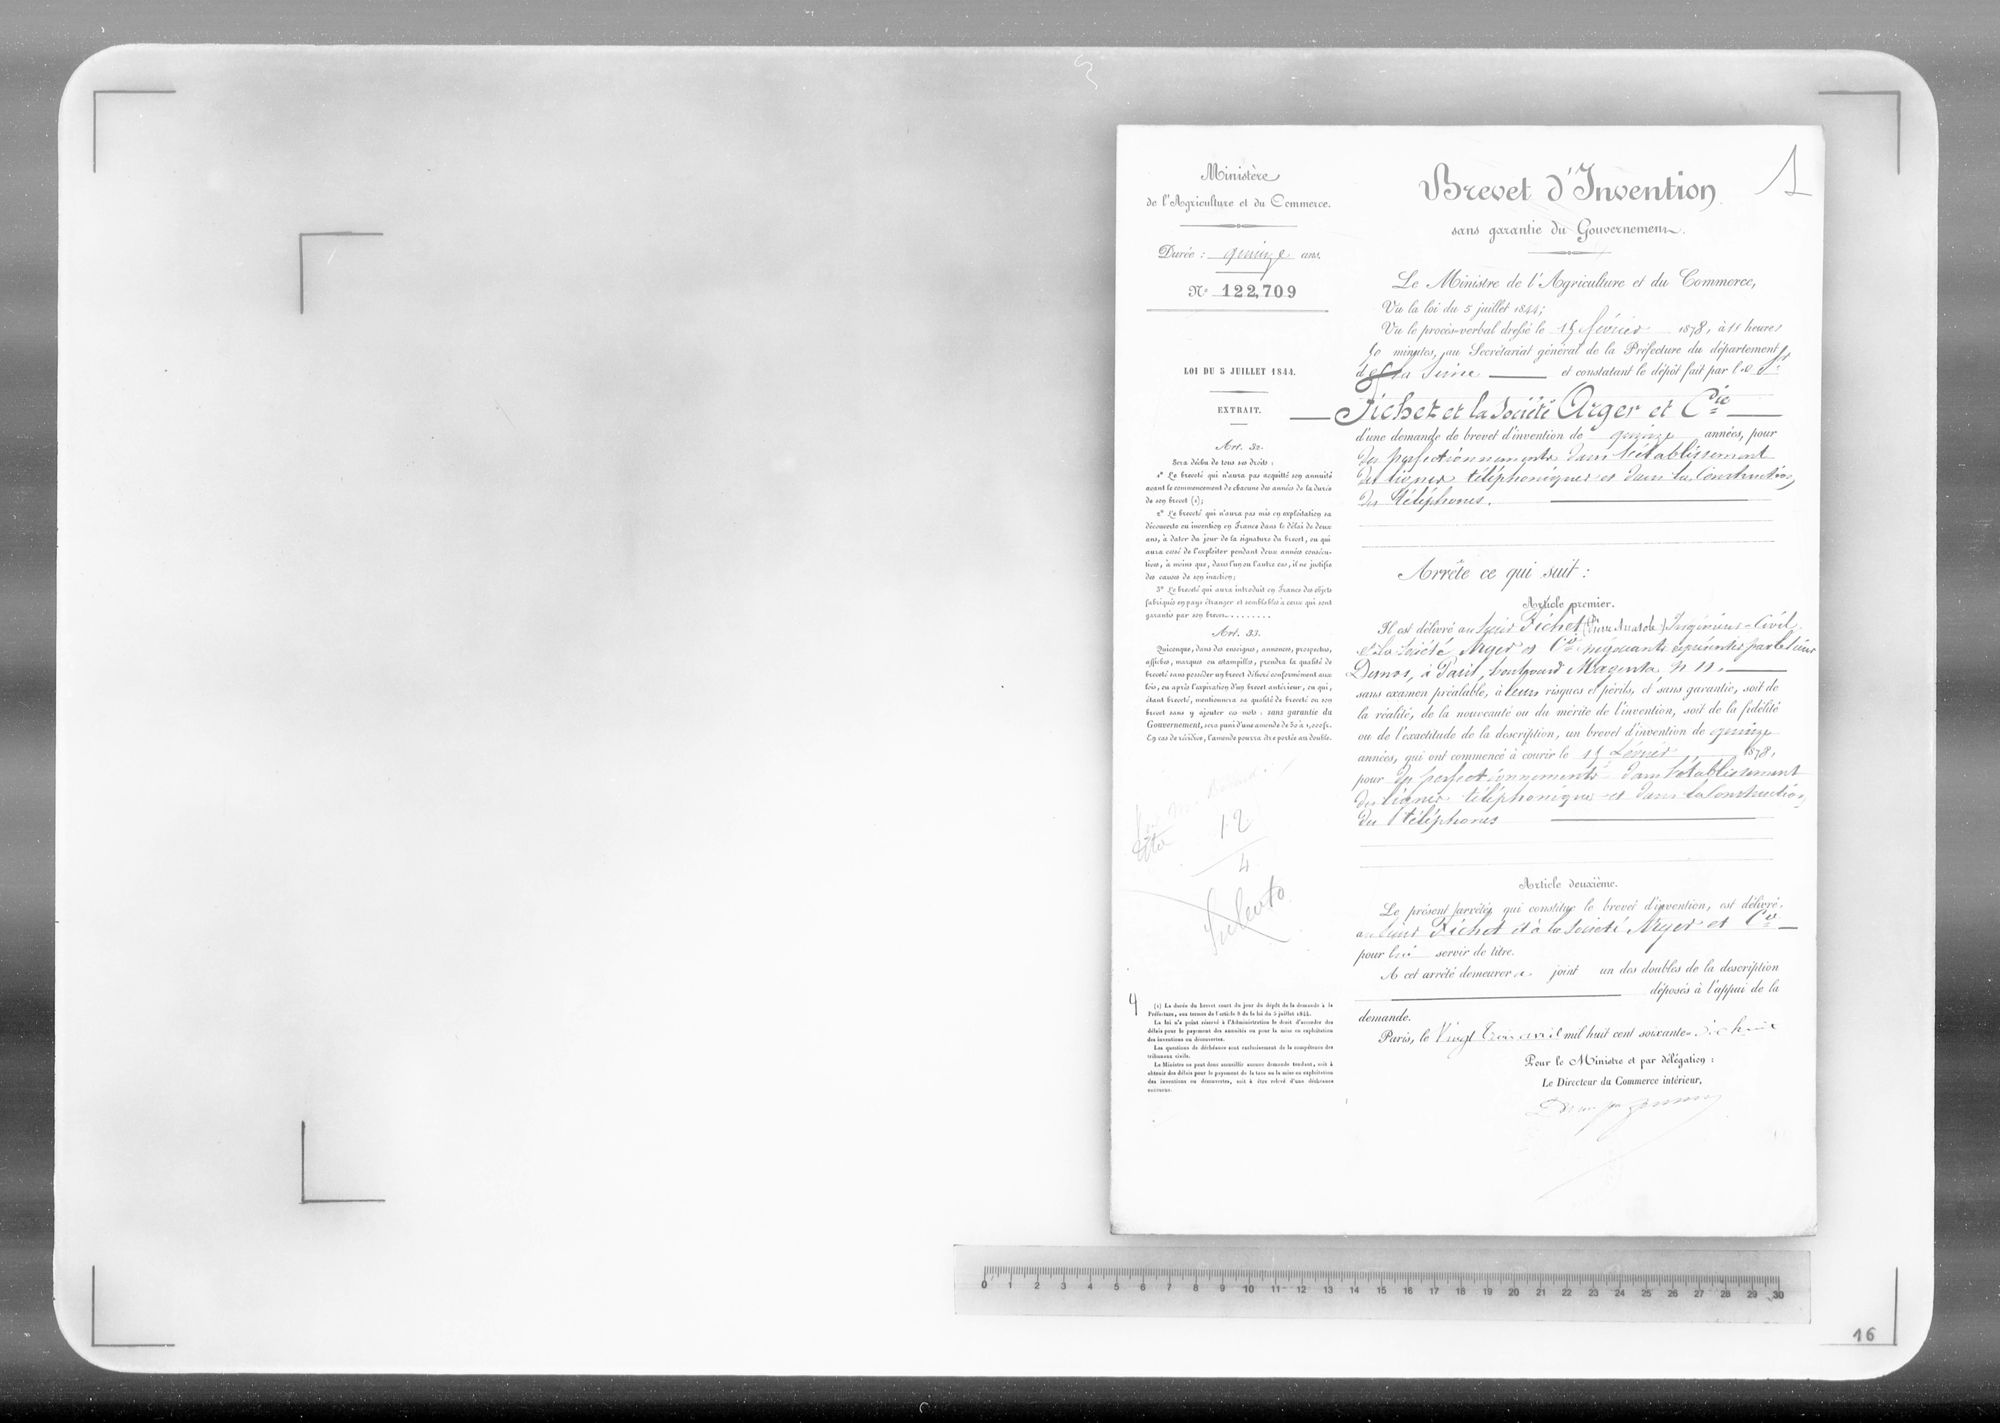 Ministère
de l'Agriculture et du Commerce.
Durée : quinze ans.
N° 122,709
LOI DU 5 JUILLET 1844.
EXTRAIT.
Art. 32.
Sera déchu de tous ses droits :
1° Le breveté qui n'aura pas acquitté son annuité
avant le commencement de chacune des années de la durée
de son brevet (1);
2° Le breveté qui n'aura pas mis en exploitation sa
découverte ou invention en France dans le délai de deux
ans, à dater du jour de la signature du brevet, ou qui
aura cessé de l'exploiter pendant deux années consécu-
tives, à moins que, dans l'un ou l'autre cas, il ne justifie
des causes de son inaction;
3° Le breveté qui aura introduit en France des objets
fabriqués en pays étranger et semblables à ceux qui sont
garantis par son brevet........
Art. 33.
Quiconque, dans des enseignes, annonces, prospectus,
affiches, marques ou estampilles, prendra la qualité de
breveté sans posséder un brevet délivré conformément aux
lois, ou après l'expiration d'un brevet antérieur, ou qui,
étant breveté, mentionnera sa qualité de breveté ou son
brevet sans y ajouter ces mots : sans garantie du
Gouvernement, sera puni d'une amende de 50 à 1,000 fr.
En cas de récidive, l'amende pourra être portée au double.
12
4
4
(1) La durée du brevet court du jour du dépôt de la demande à la
Préfecture, aux termes de l'article 8 de la loi du 5 juillet 1844.
La loi n'a point réservé à l'Administration le droit d'accorder des
délais pour le payement des annuités ou pour la mise en exploitation
des inventions ou découvertes.
Les questions de déchéance sont exclusivement de la compétence des
tribunaux civils.
Le Ministre ne peut donc accueillir aucune demande tendant, soit à
obtenir des délais pour le payement de la taxe ou la mise en exploitation
des inventions ou découvertes, soit à être relevé d'une déchéance
encourue.
1
Brevet d'Invention
sans garantie du Gouvernement.
Le Ministre de l'Agriculture et du Commerce,
Vu la loi du 5 juillet 1844;
Vu le procès-verbal dressé le 15 février 1878, à 11 heures
50 minutes, au Secrétariat général de la Préfecture du département
de la Seine et constatant le dépôt fait par les Srs
Fichet et la Société Arger et Cie
d'une demande de brevet d'invention de quinze années, pour
des perfectionnements dans l'établissement
des lignes téléphoniques et dans la construction
des téléphones.
Arrête ce qui suit :
Article premier.
Il est délivré au Sieur Fichet (Pierre Anatole) Ingénieur-Civil
et la Société Arger et Cie négociants représentés par le Sieur
Desnos, à Paris, boulevard Magenta n° 11,
sans examen préalable, à leurs risques et périls, et sans garantie, soit de
la réalité, de la nouveauté ou du mérite de l'invention, soit de la fidélité
ou de l'exactitude de la description, un brevet d'invention de quinze
années, qui ont commencé à courir le 15 février 1878,
pour des perfectionnements dans l'établissement
des lignes téléphoniques et dans la construction
des téléphones
Article deuxième.
Le présent arrêté, qui constitue le brevet d'invention, est délivré
au Sieur Fichet et à la Société Arger et Cie
pour servir de titre.
A cet arrêté demeurera joint un des doubles de la description
déposés à l'appui de la
demande.
Paris, le Vingt trois avril mil huit cent soixante-dix huit
Pour le Ministre et par délégation :
Le Directeur du Commerce intérieur,
0 1 2 3 4 5 6 7 8 9 10 11 12 13 14 15 16 17 18 19 20 21 22 23 24 25 26 27 28 29 30
16